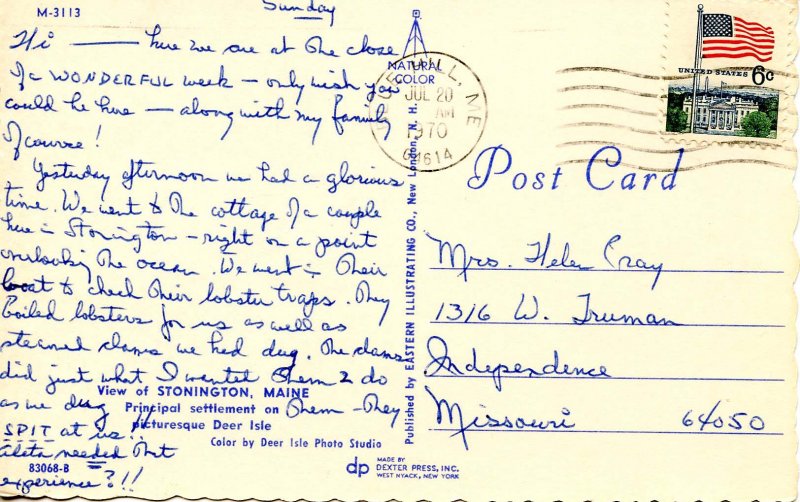 M-3113
Sunday
Hi — here we are at the close
of a WONDERFUL week – only wish you
could be here – along with my family
of course!
Yesterday afternoon we had a glorious
time. We went to the cottage of a couple
here in Stonington – right on a point
overlooking the ocean. We went in their
boat to check their lobster traps. They
boiled lobsters for us as well as
steamed clams we had dug. The clams
did just what I wanted them 2 do
as we dug them – They
SPIT at us!!
needed that
experience?!!
View of STONINGTON, MAINE
Principal settlement on
picturesque Deer Isle
Color by Deer Isle Photo Studio
83068-B
NATURAL
COLOR
Published by EASTERN ILLUSTRATING CO., New London, N. H.
dp
MADE BY
DEXTER PRESS, INC.
WEST NYACK, NEW YORK
HILL, ME
JUL 20
AM
1970
04614
UNITED STATES 6c
Post Card
Mrs. Helen Cray
1316 W. Truman
Independence
Missouri 64050